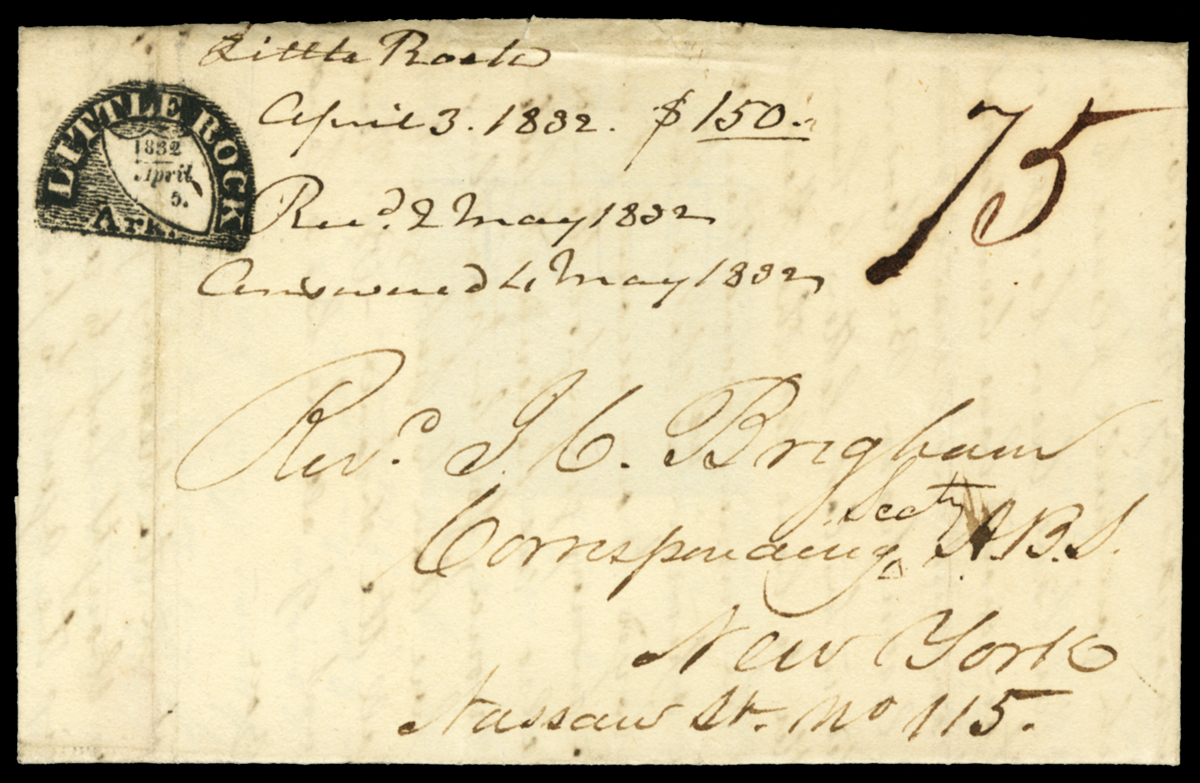 Little Rock
April 3. 1832. $150.
Recd. 2 May 1832
Answered 4 May 1832
LITTLE ROCK
1832
April
5.
Ark.
75
Revd. J. C. Brigham
Secty
Corresponding A.B.S.
New York
Nassau St. No 115.